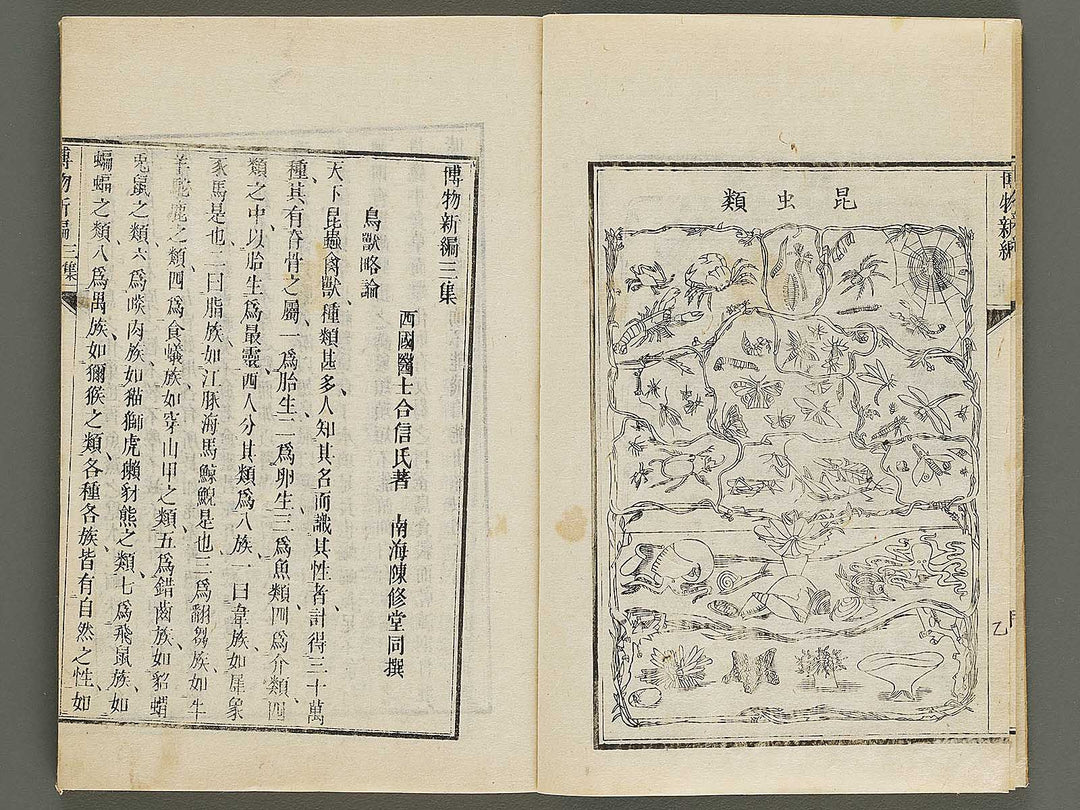 博物新編
昆虫類
乙
博物新編三集
西國醫士合信氏著　南海陳修堂同撰
鳥獸略論
天下昆蟲禽獸種類甚多、人知其名而識其性者、計得三十萬
種、其有脊骨之屬、一爲胎生、二爲卵生、三爲魚類、四爲介類、四
類之中、以胎生爲最靈、西人分其類爲八族、一曰韋族、如犀象
豕馬是也、二曰脂族、如江豚海馬鯨鯢是也、三爲翻芻族、如牛
羊駝鹿之類、四爲食蟻族、如穿山甲之類、五爲錯齒族、如貂蝟
兎鼠之類、六爲啖肉族、如猫獅虎獺豺熊之類、七爲飛鼠族、如
蝙蝠之類、八爲禺族、如獼猴之類、各種各族、皆有自然之性、如
博物新編三集